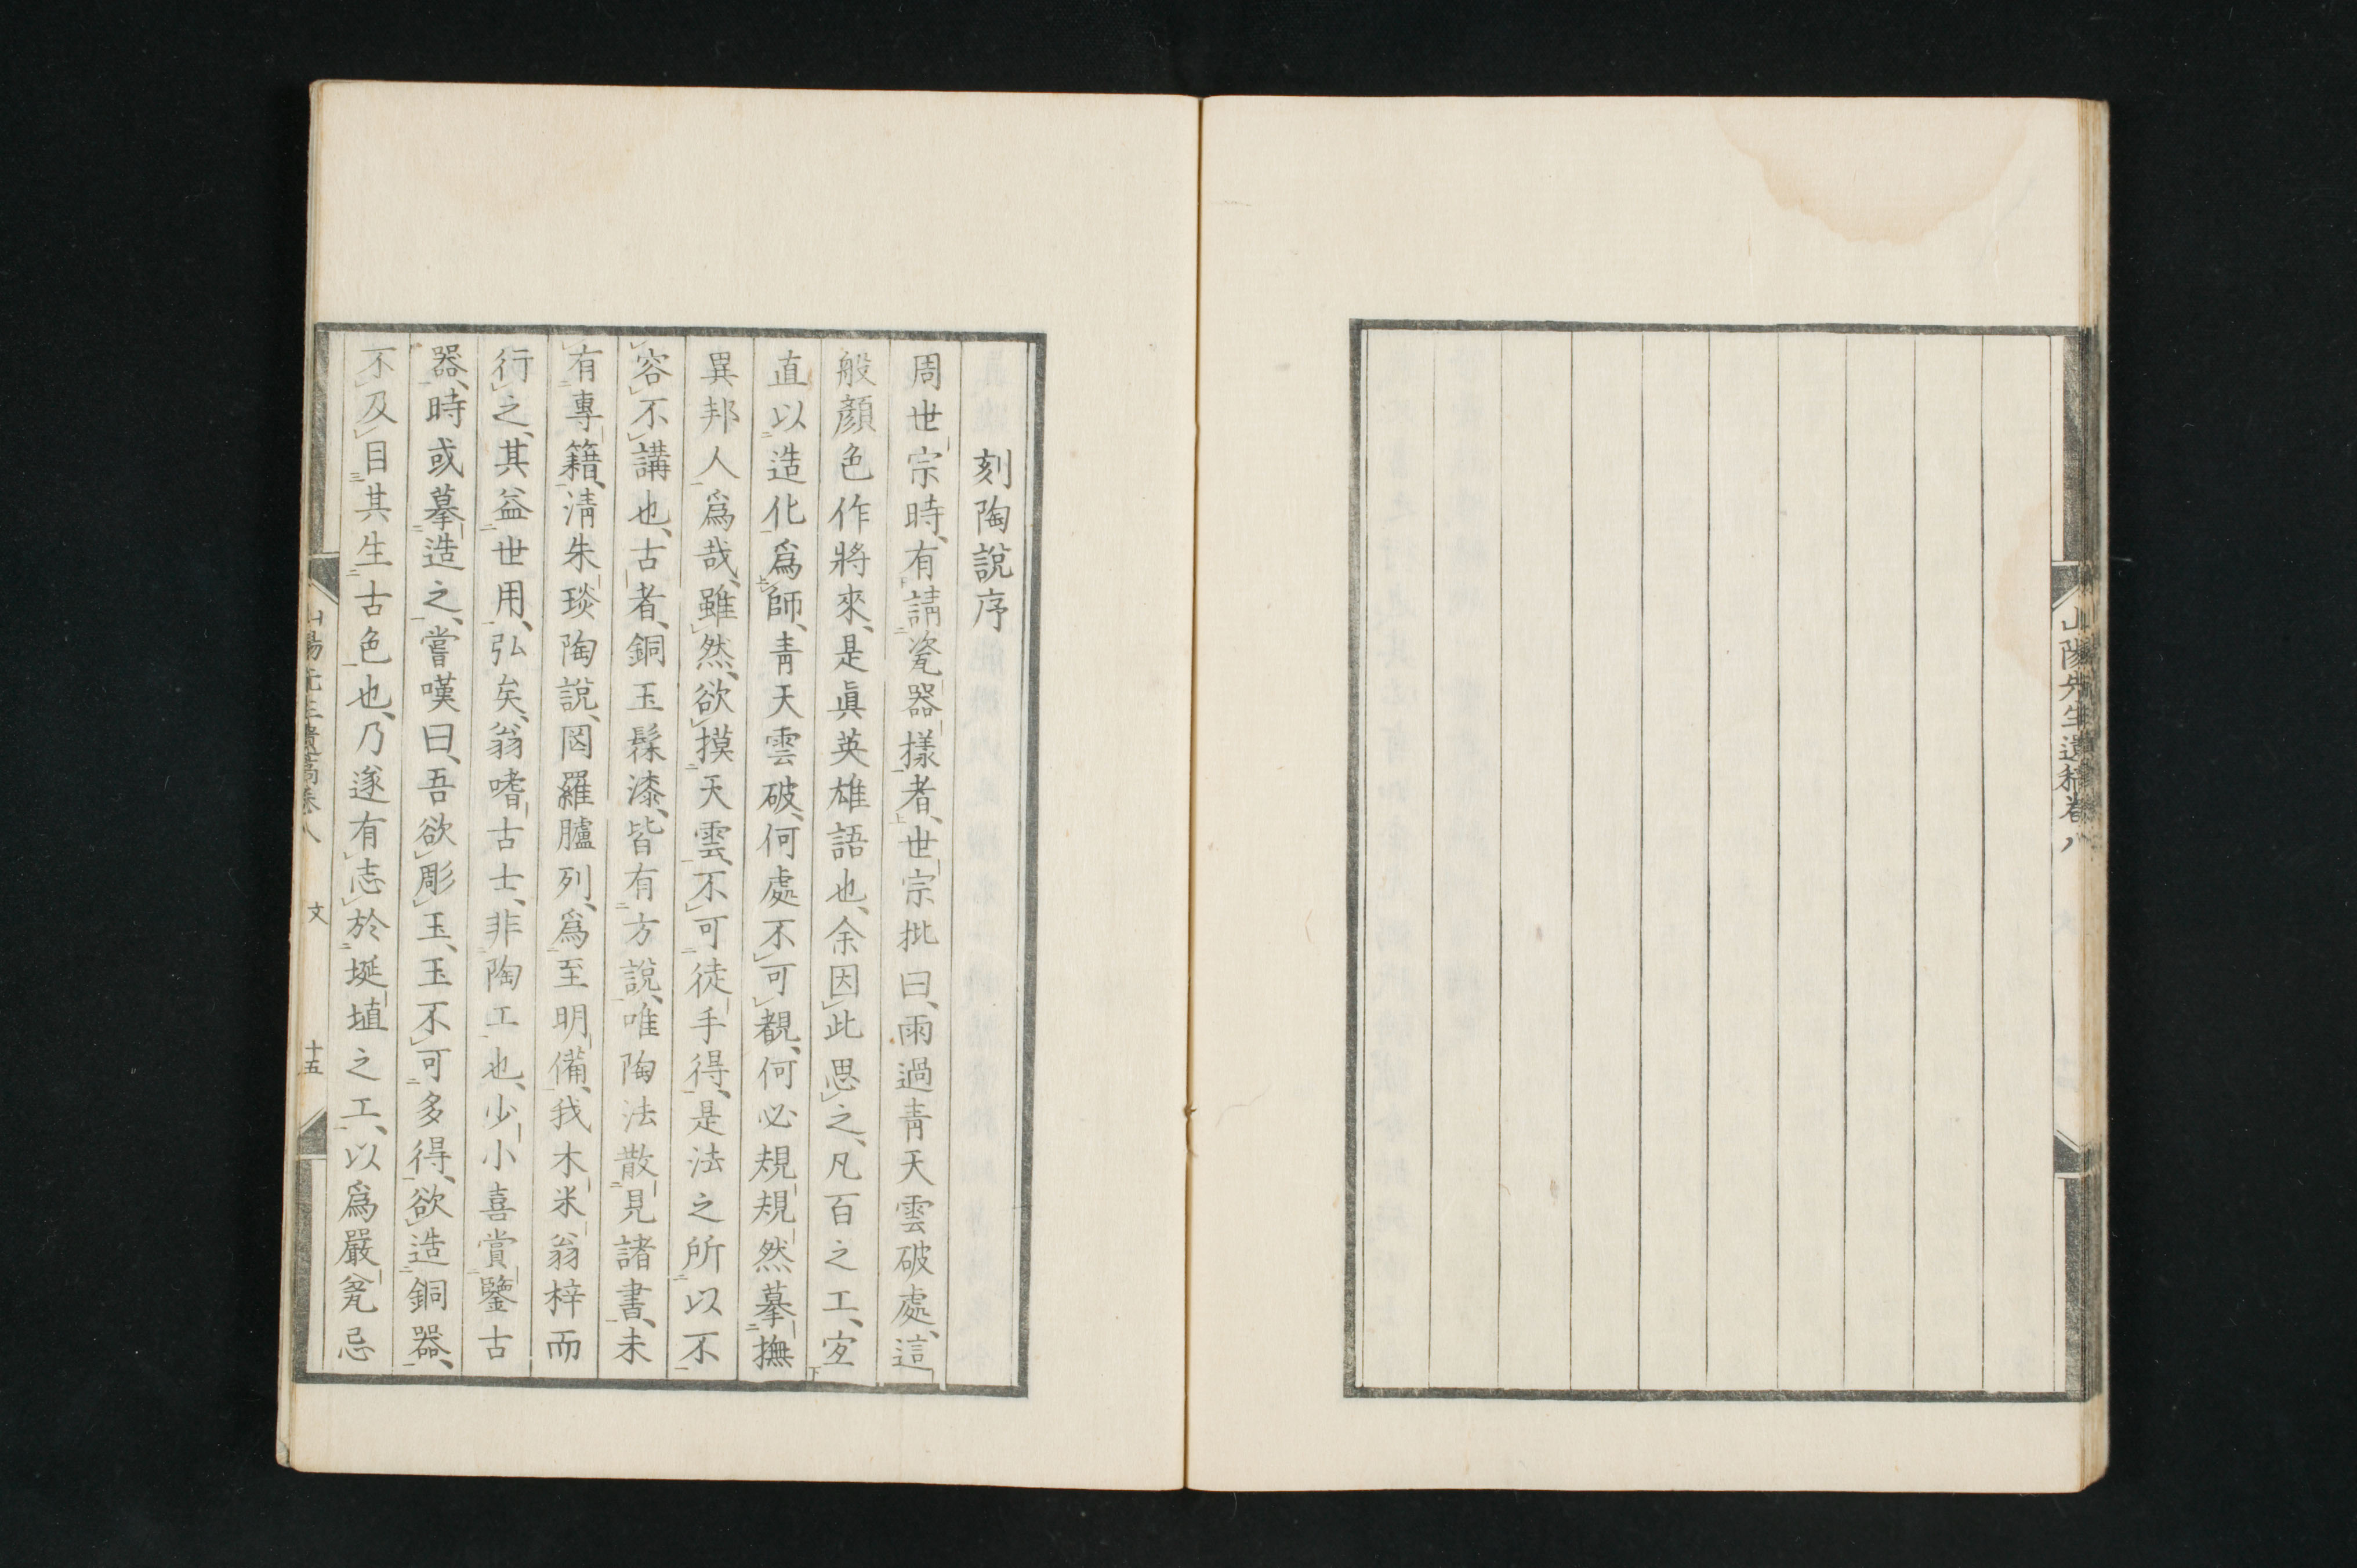 山陽先生遺稿卷八
刻陶說序
周世宗時、有請瓷器樣者、世宗批曰、雨過靑天雲破處、這
般顏色作將來、是眞英雄語也、余因此思之、凡百之工、宐
直以造化爲師、靑天雲破、何處不可覩、何必規規然摹撫
異邦人爲哉、雖然、欲摸天雲、不可徒手得、是法之所以不
容不講也、古者、銅玉髹漆、皆有方說、唯陶法散見諸書、未
有專籍、淸朱琰陶說、罔羅臚列、爲至明備、我木米翁梓而
行之、其益世用、弘矣、翁嗜古士、非陶工也、少小喜賞鑒古
器、時或摹造之、嘗嘆曰、吾欲彫玉、玉不可多得、欲造銅器、
不及目其生古色也、乃遂有志於埏埴之工、以爲嚴瓮忌
山陽先生遺稿卷八 文 十五